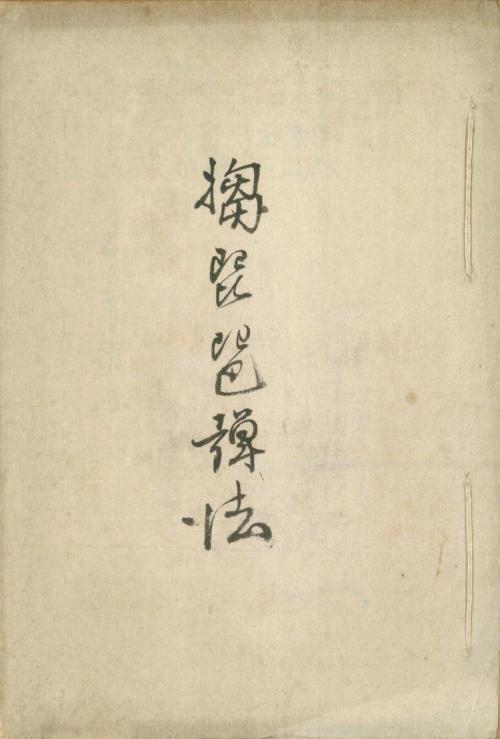 搊琵琶彈法